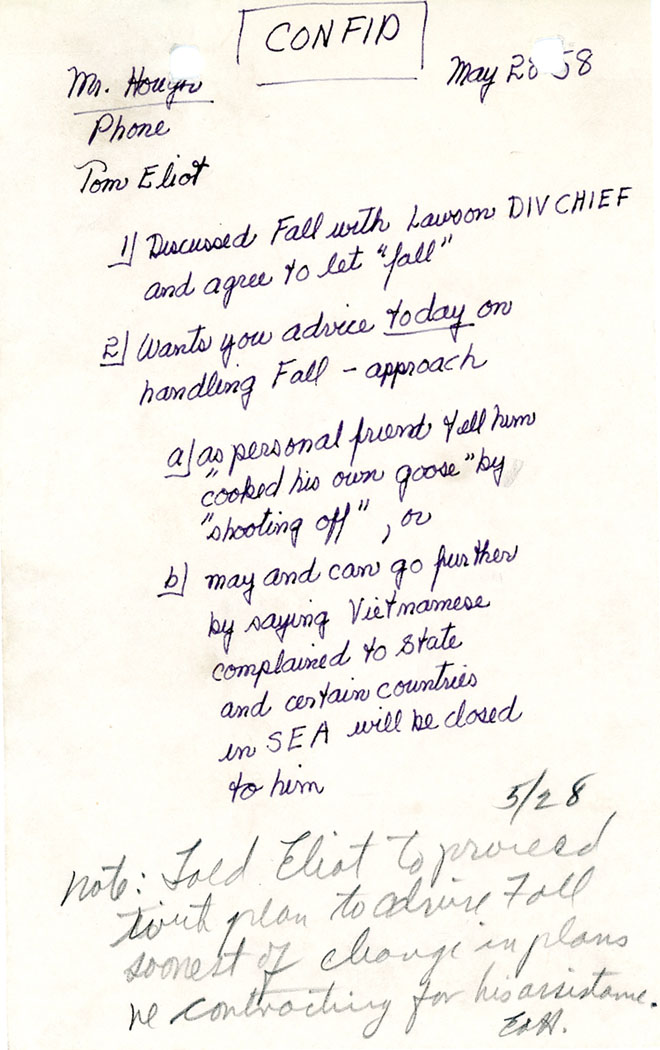 CONFID
May 28 58
Mr. Houyn
Phone
Tom Eliot
1) Discussed Fall with Lawson DIV CHIEF
and agree to let "fall"
2) Wants you advice today on
handling Fall - approach
a) as personal friend tell him
"cooked his own goose" by
"shooting off", or
b) may and can go further
by saying Vietnamese
complained to State
and certain countries
in SEA will be closed
to him
5/28
note: Told Eliot to proceed
with plan to advise Fall
soonest of change in plans
re contracting for his assistance.